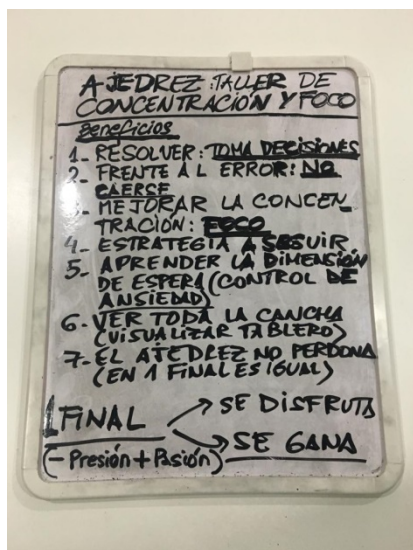 AJEDREZ: TALLER DE
CONCENTRACIÓN Y FOCO
Beneficios
1- RESOLVER: TOMA DECISIONES
2- FRENTE AL ERROR: NO
CAERSE
3- MEJORAR LA CONCEN_
TRACIÓN: FOCO
4- ESTRATEGIA A SEGUIR
5- APRENDER LA DIMENSIÓN
DE ESPERA (CONTROL DE
ANSIEDAD)
6- VER TODA LA CANCHA
(VISUALIZAR TABLERO)
7- EL AJEDREZ NO PERDONA
(EN 1 FINAL ES IGUAL)
1 FINAL → SE DISFRUTA
→ SE GANA
(- Presión + Pasión)